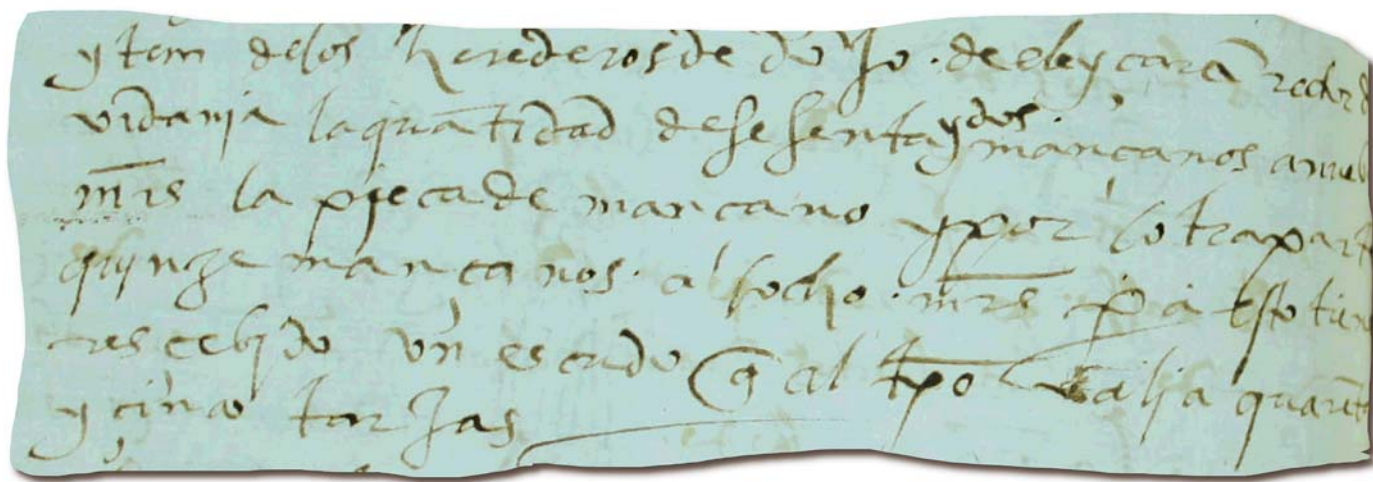 ytem delos herederos de do Jo. de eleyçara rector d
vidanja la quantidad de sesenta y dos mançanos a nue
mrs la pieça de mançano y por lotra part
quynze mançanos a ocho mrs pa esto tien
rescebido un escudo q al tpo valia quarēt
y cinco tarjas